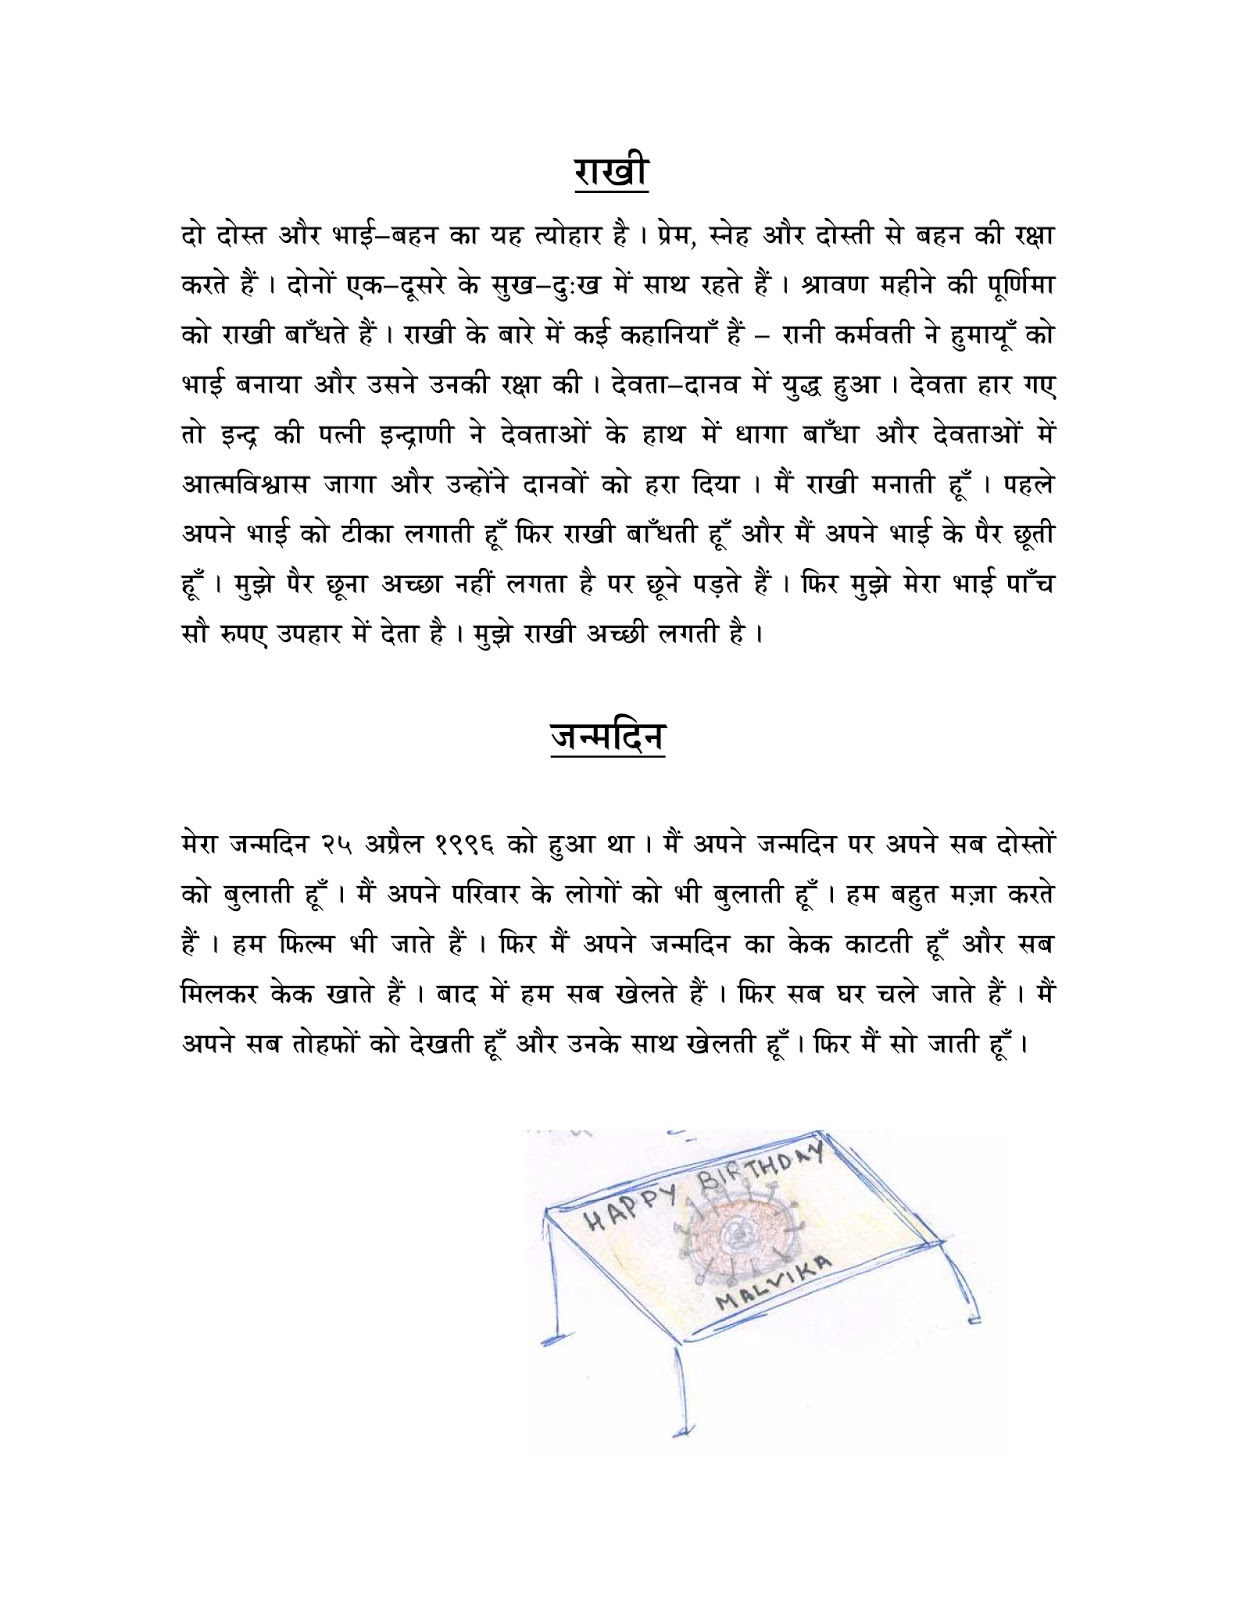 राखी
दो दोस्त और भाई–बहन का यह त्योहार है । प्रेम, स्नेह और दोस्ती से बहन की रक्षा
करते हैं । दोनों एक–दूसरे के सुख–दुःख में साथ रहते हैं । श्रावण महीने की पूर्णिमा
को राखी बाँधते हैं । राखी के बारे में कई कहानियाँ हैं – रानी कर्मवती ने हुमायूँ को
भाई बनाया और उसने उनकी रक्षा की । देवता–दानव में युद्ध हुआ । देवता हार गए
तो इन्द्र की पत्नी इन्द्राणी ने देवताओं के हाथ में धागा बाँधा और देवताओं में
आत्मविश्वास जागा और उन्होंने दानवों को हरा दिया । मैं राखी मनाती हूँ । पहले
अपने भाई को टीका लगाती हूँ फिर राखी बाँधती हूँ और मैं अपने भाई के पैर छूती
हूँ । मुझे पैर छूना अच्छा नहीं लगता है पर छूने पड़ते हैं । फिर मुझे मेरा भाई पाँच
सौ रुपए उपहार में देता है । मुझे राखी अच्छी लगती है ।
जन्मदिन
मेरा जन्मदिन २५ अप्रैल १९९६ को हुआ था । मैं अपने जन्मदिन पर अपने सब दोस्तों
को बुलाती हूँ । मैं अपने परिवार के लोगों को भी बुलाती हूँ । हम बहुत मज़ा करते
हैं । हम फिल्म भी जाते हैं । फिर मैं अपने जन्मदिन का केक काटती हूँ और सब
मिलकर केक खाते हैं । बाद में हम सब खेलते हैं । फिर सब घर चले जाते हैं । मैं
अपने सब तोहफों को देखती हूँ और उनके साथ खेलती हूँ । फिर मैं सो जाती हूँ ।
HAPPY BIRTHDAY
MALVIKA